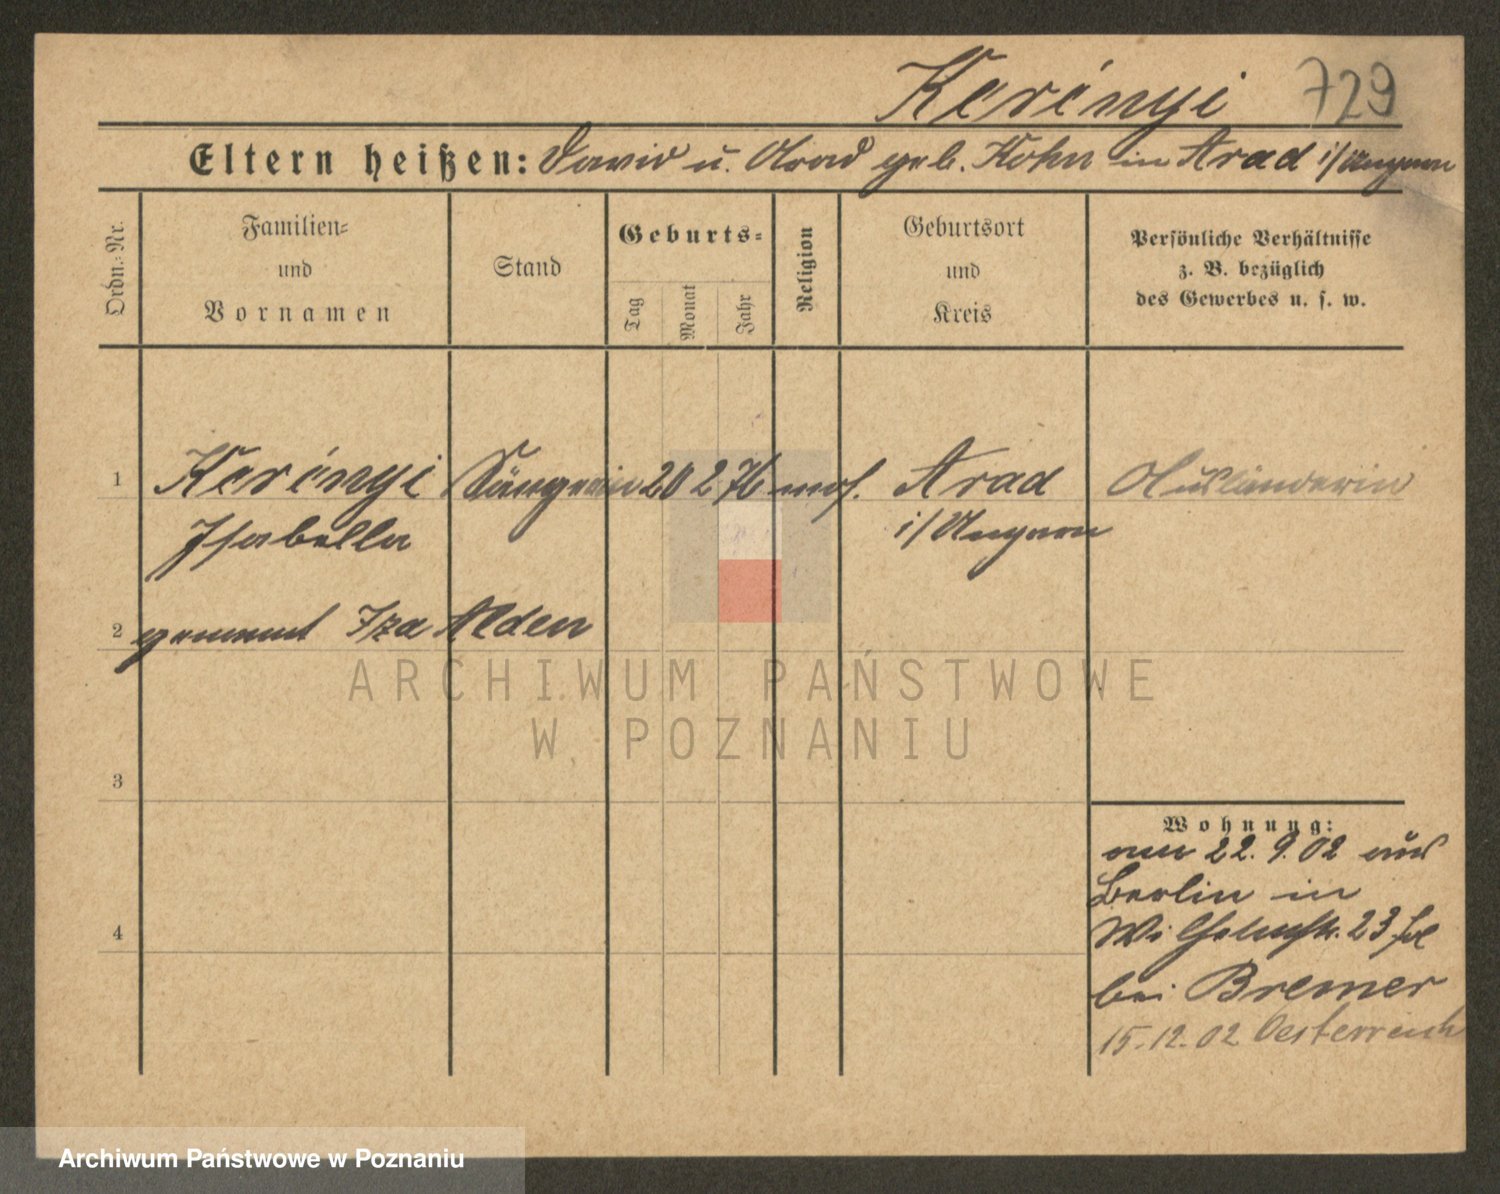 Kerényi 729
Eltern heißen: David u. Arad geb. Kohn in Arad i/Ungarn
Ordn.-Nr.
Familien-
und
Vornamen
Stand
Geburts-
Tag
Monat
Jahr
Religion
Geburtsort
und
Kreis
Persönliche Verhältnisse
z. B. bezüglich
des Gewerbes u. s. w.
1 Kerényi Sängerin 20 2 76 mos. Arad Ausländerin
Isabella i/Ungarn
2 genannt Iza Alden
ARCHIWUM PAŃSTWOWE
W POZNANIU
3
4
Wohnung:
am 22.9.02 aus
Berlin in
Wilhelmstr. 23
bei Bremer
15.12.02 Oesterreich
Archiwum Państwowe w Poznaniu